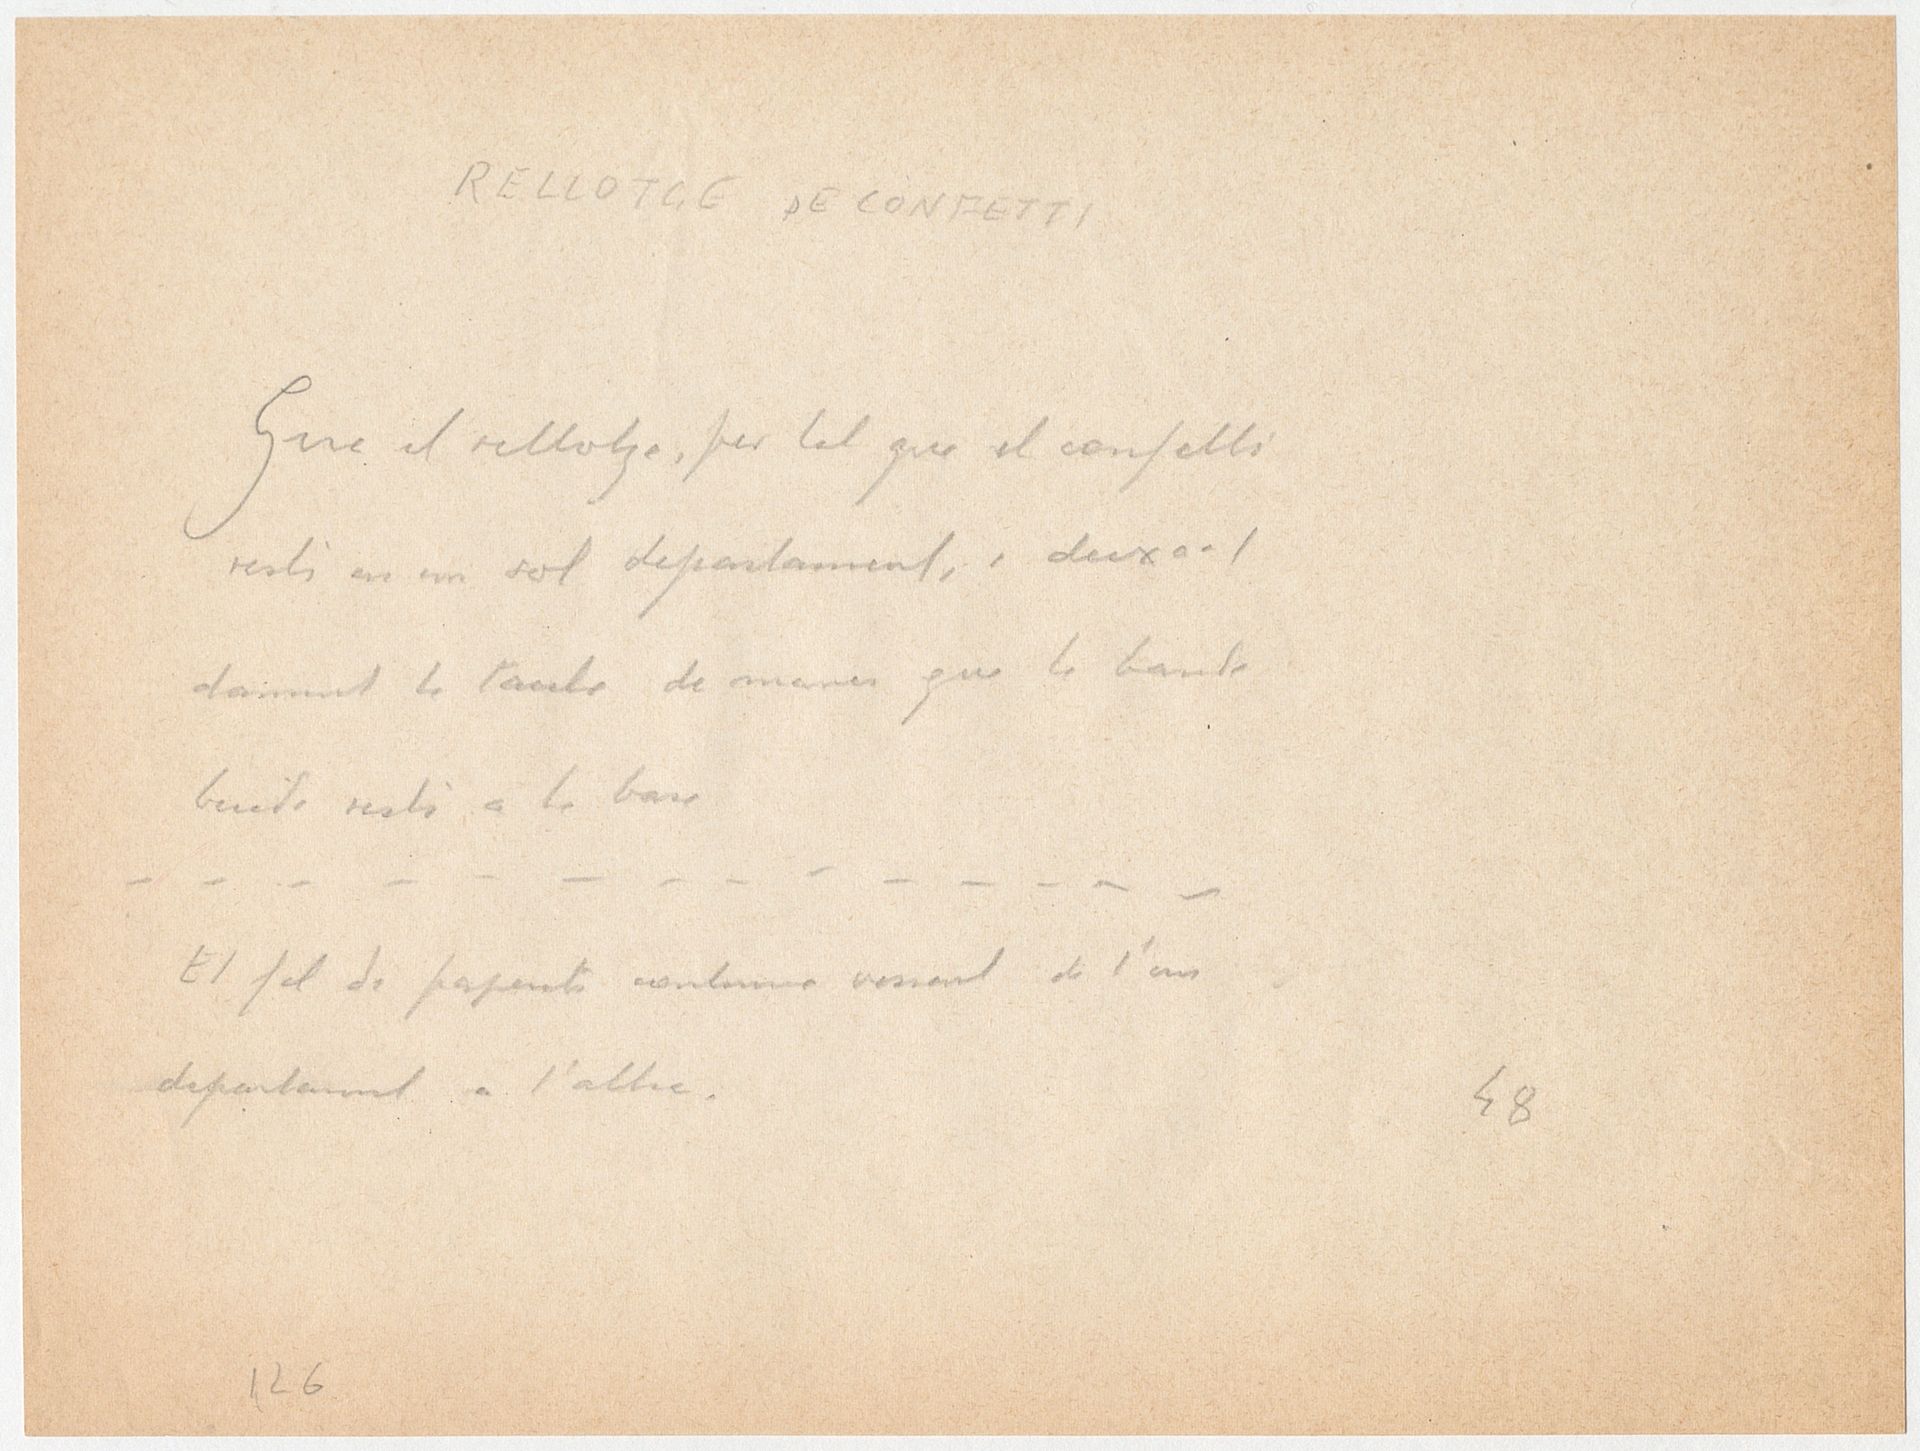 RELLOTGE DE CONFETTI
Gire el rellotge, per tal que el confetti
resti en un sol departament, i deixa-l
damunt la taula de manera que la banda
buida resti a la base
- - - - - - - - - - - - - -
El fil de paperets continua vessant de l'un
departament a l'altre.
48
126